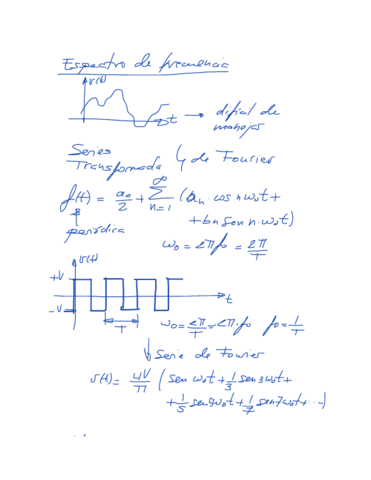 Espectro de frecuencia
v(t)
t → difícil de
manejar
Series
Transformada } de Fourier
f(t) = a₀/2 + ∞∑n=1 (an · cos nω₀t +
+ bn sen n·ω₀t)
periódica
ω₀ = 2πf₀ = 2π/T
v(t)
+V
t
-V
T
ω₀ = 2π/T = 2π·f₀ f₀ = 1/T
↓ Serie de Fourier
v(t) = 4V/π ( sen ω₀t + 1/3 sen 3ω₀t +
+ 1/5 sen 5ω₀t + 1/7 sen 7ω₀t + ··· )